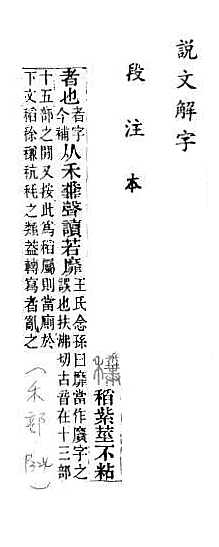 說文解字
段注本
稻紫莖不粘
者也者字今補从禾糞聲讀若靡王氏念孫曰靡當作黂字之誤也扶沸切古音在十三部
十五部之閒又按此爲稻屬則當廁於
下文稻稌稬秔秏之類蓋轉寫者亂之
(禾部)